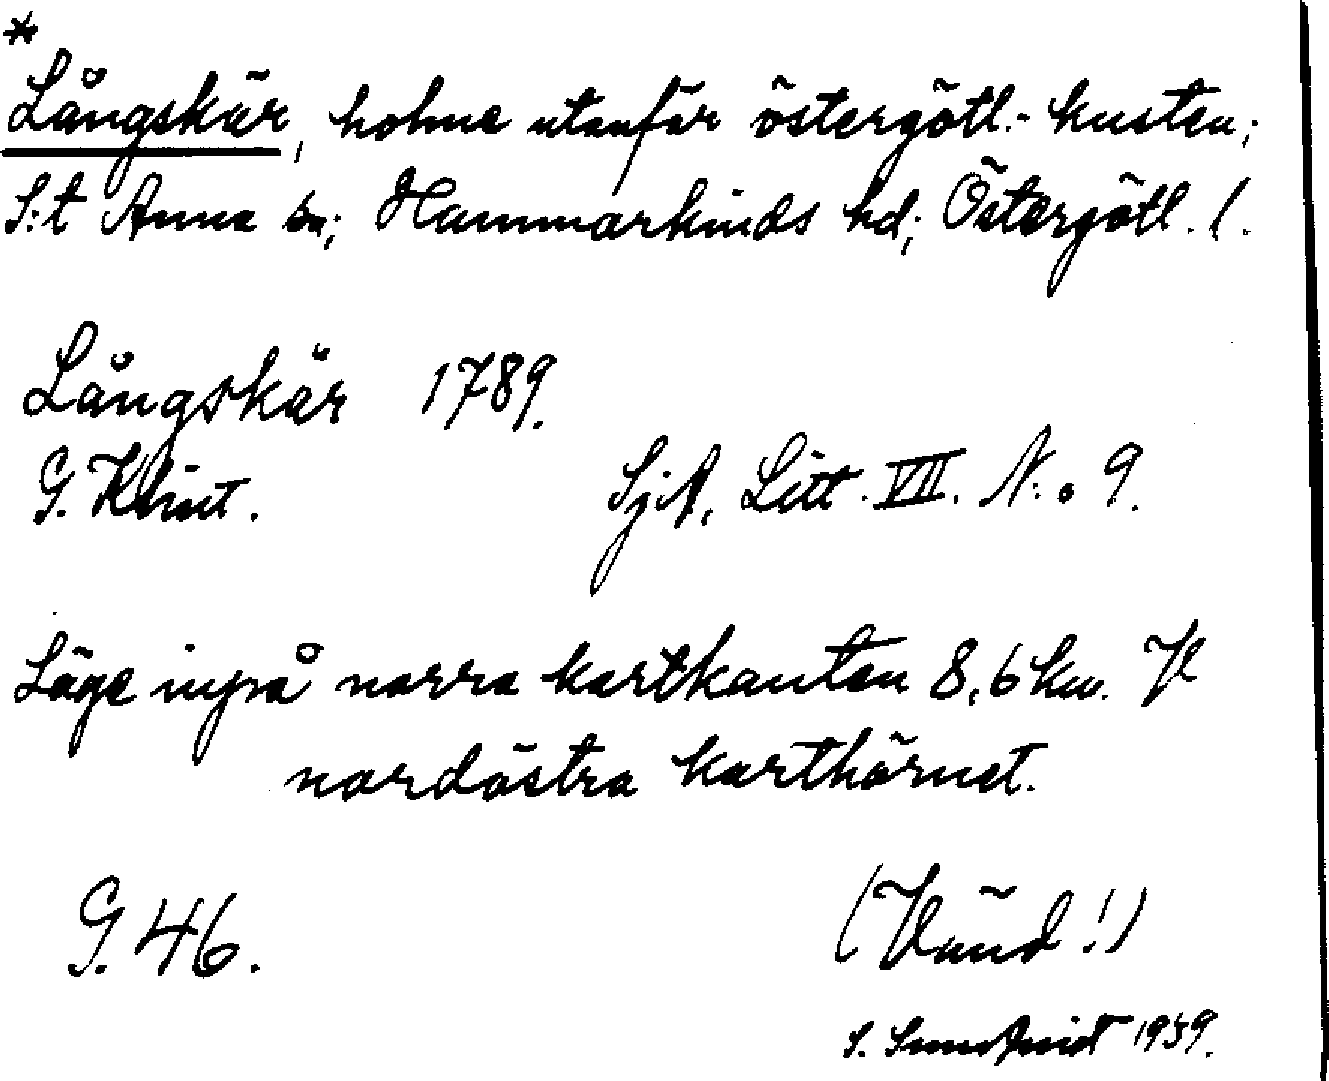 *
Långskär, holme utanför östergötl.- kusten;
S:t Anna sn; Hammarkinds hd; Östergötl. l.
Långskär 1789.
G. Klint. SjA, Litt. VII. N:o 9.
Läge inpå norra kartkanten 8,6 km. V
nordöstra karthörnet.
G. 46.
(Vänd!)
S. 1939.